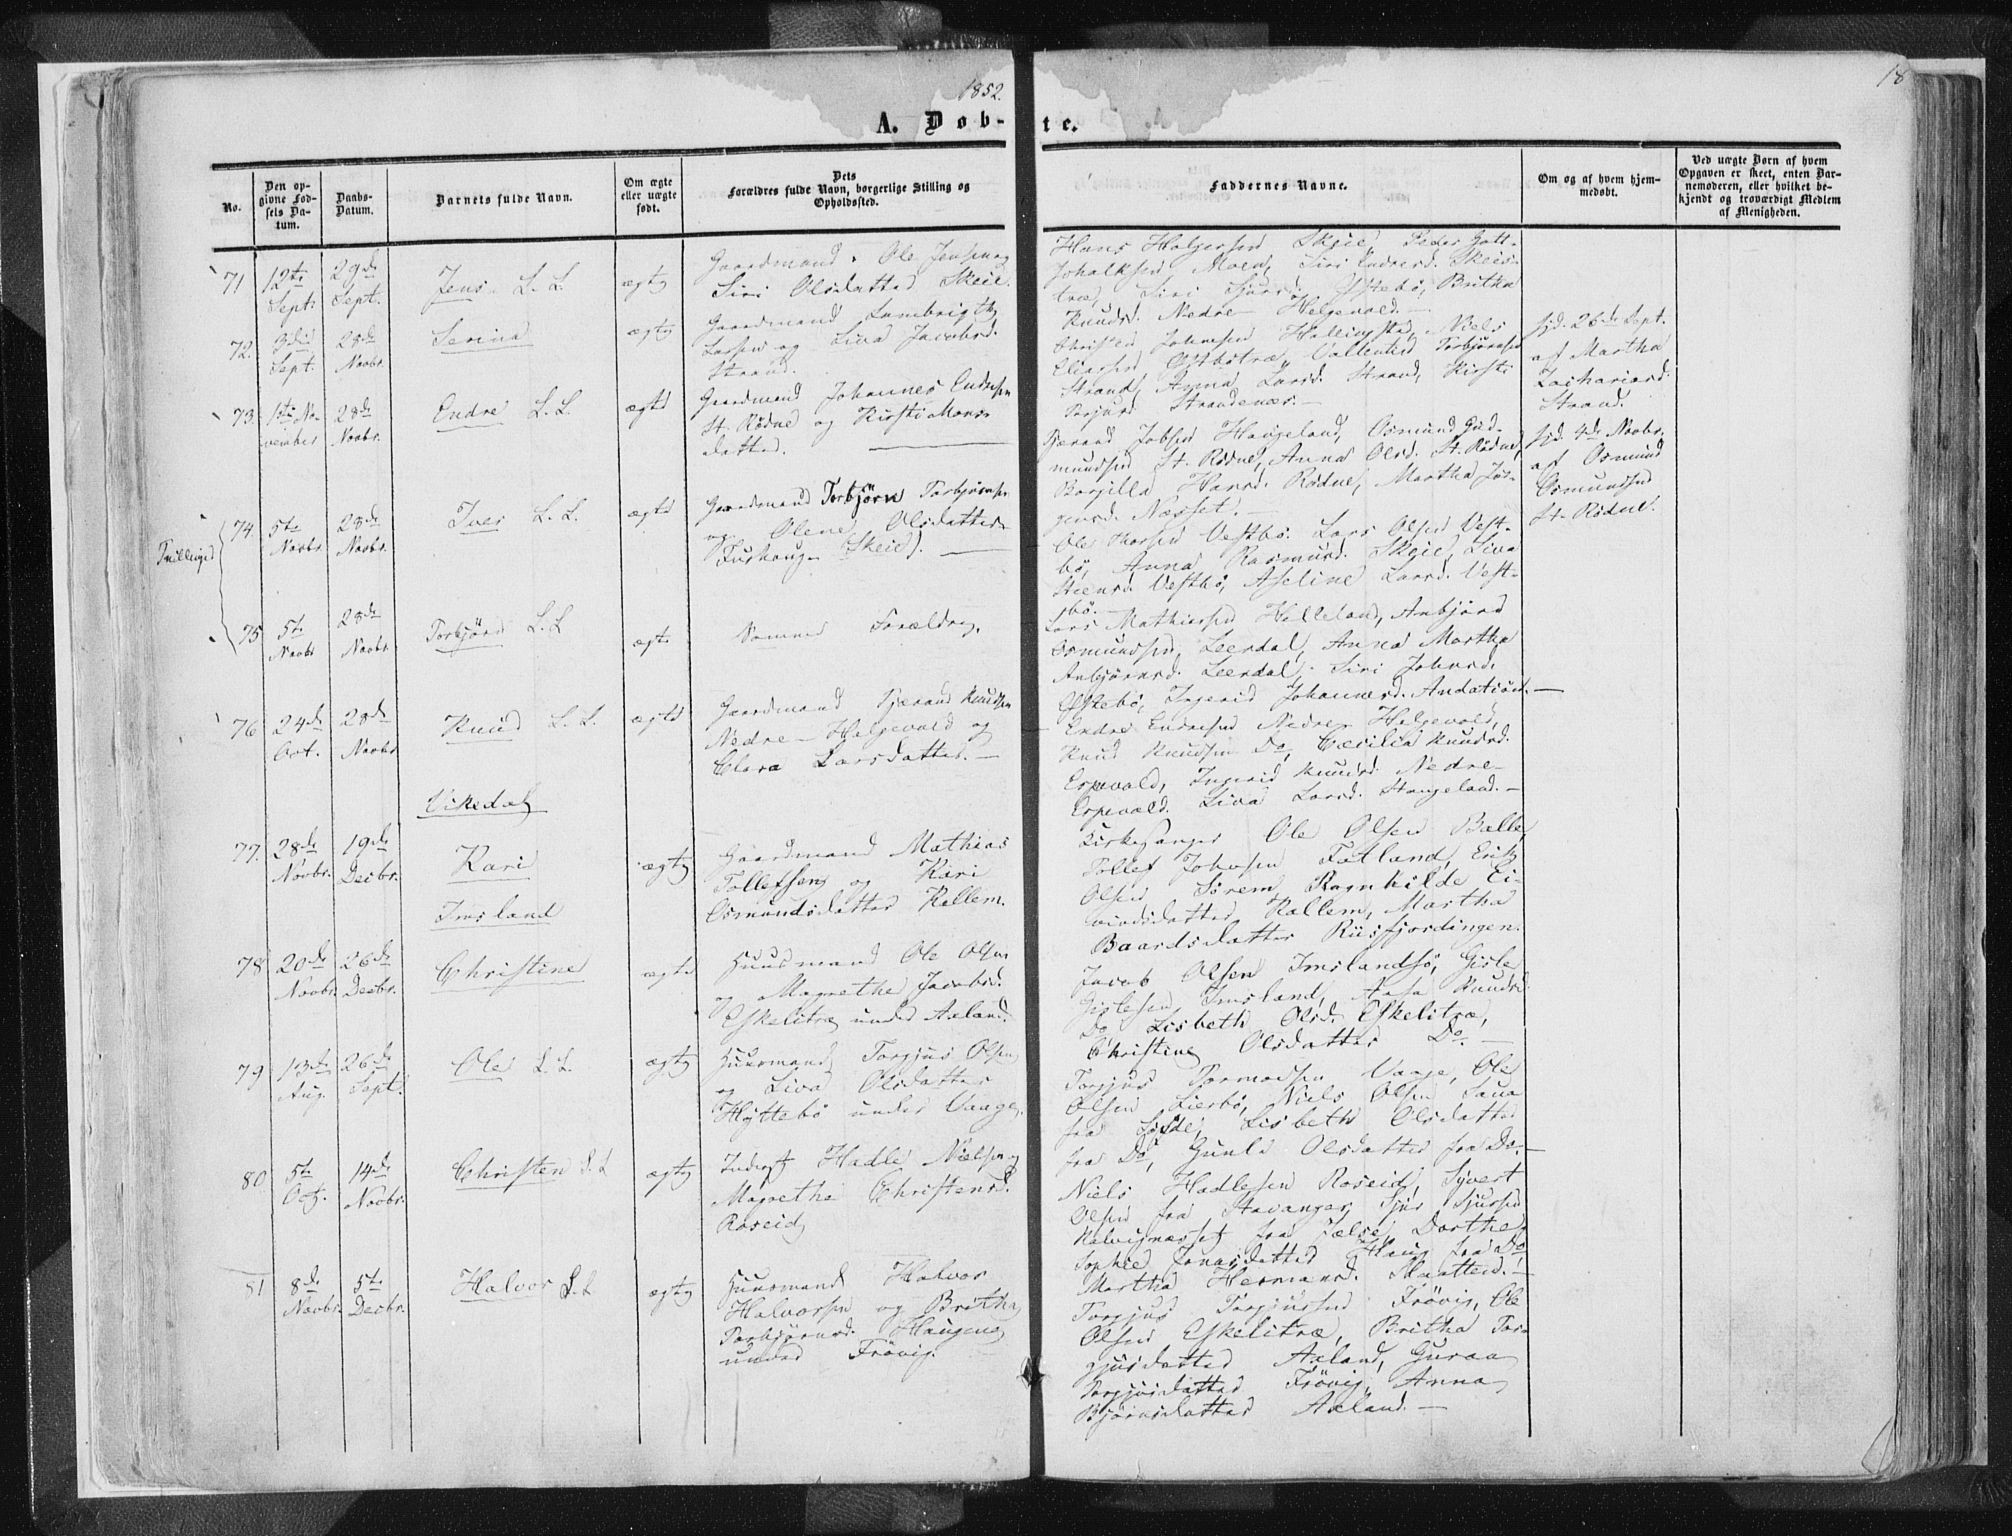 1852.
18
A. Døb-
te.
No.
Den op-
givne Fød-
sels Da-
tum.
Daabs-
Datum.
Barnets fulde Navn.
Om ægte
eller uægte
født.
Dets
Forældres fulde Navn, borgerlige Stilling og
Opholdssted.
Faddernes Navne.
Om og af hvem hjem-
medøbt.
Ved uægte Børn af hvem
Opgaven er skeet, enten Bar-
nemoderen, eller hvilket be-
kjendt og troværdigt Medlem
af Menigheden.
71 12te Sept. 29de Sept. Jens L. L. ægte
Gaardmand Ole Jensen og
Siri Olsdatter Skeie.
Hans Holgersen Skeie, Peder Gott-
schalksen Moen, Siri Endresd. Skeis-
træ, Siri Sjursd. Østebö, Britha
Knudsd. Nedre Helgevold.
72. 3die Sept. 28de Novbr. Serina ægte
Gaardmand Lambrigt
Larsen og Liva Jacobsd.
Strand.
Johnsen Hallingstd, Niels
Eliassen Østbötræ, Vallentin Torbjörnsen
Strand, Anna Larsd. Strand, Kirsti
Strandenæs.
hjd. 26de Sept.
af Martha
Zachariasd.
Strand.
73. 1ste No-
vember 28de Novbr. Endre L. L. ægte
Gaardmand Johannes Endresen
St. Rödne og Kirsti Mons-
datter.
Tjerand Jobsen Haugeland, Osmund Gud-
mundsen St. Rödne, Anna Olsd. St. Rödne,
Borgilla Hansd. Rödne, Martha Jör-
gensd. Næsset.
hjd. 4de Novbr.
af Osmund
Osmundsen
St. Rödne.
Tvillinger
74. 5te Novbr. 28de Novbr. Iver L. L. ægte
Gaardmand Torbjörn Torbjörnsen
og Olene Olsdatter
Tushaug (Skeie).
Ole Thorsen Vestbö. Lars Olsen Vest-
bö, Anna Rasmusd. Skeie, Liva
Steensd. Vestbö, Aseline Larsd. Vest-
bö.
75 5te Novbr 28de Novbr. Torbjörn L. L ægte
Samme Forældre.
Lars Mathiasen Helleland, Anbjörn
Osmundsen Leerdal, Anna Martha
Anbjörnsd. Leerdal, Siri Johnsd.
Østebö, Ingerid Johannesd.
76 24de Oct. 28de Novbr. Knud L. L. ægte
Gaardmand Tjerand Knudsen
Nedre-Helgevold og
Clara Larsdatter.
Endre Endresen Nedre Helgevold,
Knud Knudsen Do, Cæcilia Knudsd.
Espevold, Ingerid Knudsd. Nedre-
Espevold. Liva Larsd. Stangeland.
Vikedal
77. 28de Novbr. 19de Decbr. Kari ægte
Gaardmand Mathias
Tollefsen og Kari
Osmundsdatter Kallem.
Kirkesanger Ole Olsen Balle
Tollef Johnsen Fatland, Erik
Olsen Sörem, Ragnhilde Ei-
vindsdatter Kallem, Martha
Baardsdatter Riisfjordingen.
Imsland
78 20de Novbr. 26de Decbr. Christine ægte
Huusmand Ole Olsen
og Magrethe Jacobsd.
Eskelitræ under Axland.
Jacob Olsen Imslandsö, Gisle
Gislesen Imsland, Aasa Knudsd.
Do, Lisbeth Olsd. Eskelitræ,
Christine Olsdatter Do.
79 13de Aug. 26de Sept. Ole L. L. ægte
Huusmand Torgjus Olsen
og Liva Olsdatter
Hyttebö under Vaage.
Torgjus Tormodsen Vaage, Ole
Olsen Lierbö, Niels Olsen
fra Do, Gunld Olsdatter fra Do.
80 5te Oct. 14de Novbr. Christen L. L ægte
Inderst Hadle Nielsen og
Magrethe Christensd.
Roseid
Niels Hadlesen Roseid, Syvert
Olsen fra Stavanger, Sjur Sjursen
Kalvignæsset fra Jælse, Dorthe
Sophie Jonasdatter Haug fra Do
Martha Hermansd.
81 8de Novbr. 5te Decbr. Halvor L. L ægte
Huusmand Halvor
Halvorsen og Britha
Torbjörnsd. Haugene
under Frövig.
Torgjus Torgjussen Frövig, Ole
Olsen Eskelitræ, Britha Tor-
gjusdatter Axland, Guroa
Torgjusdatter Frövig, Anna
Bjørnsdatter Axland.